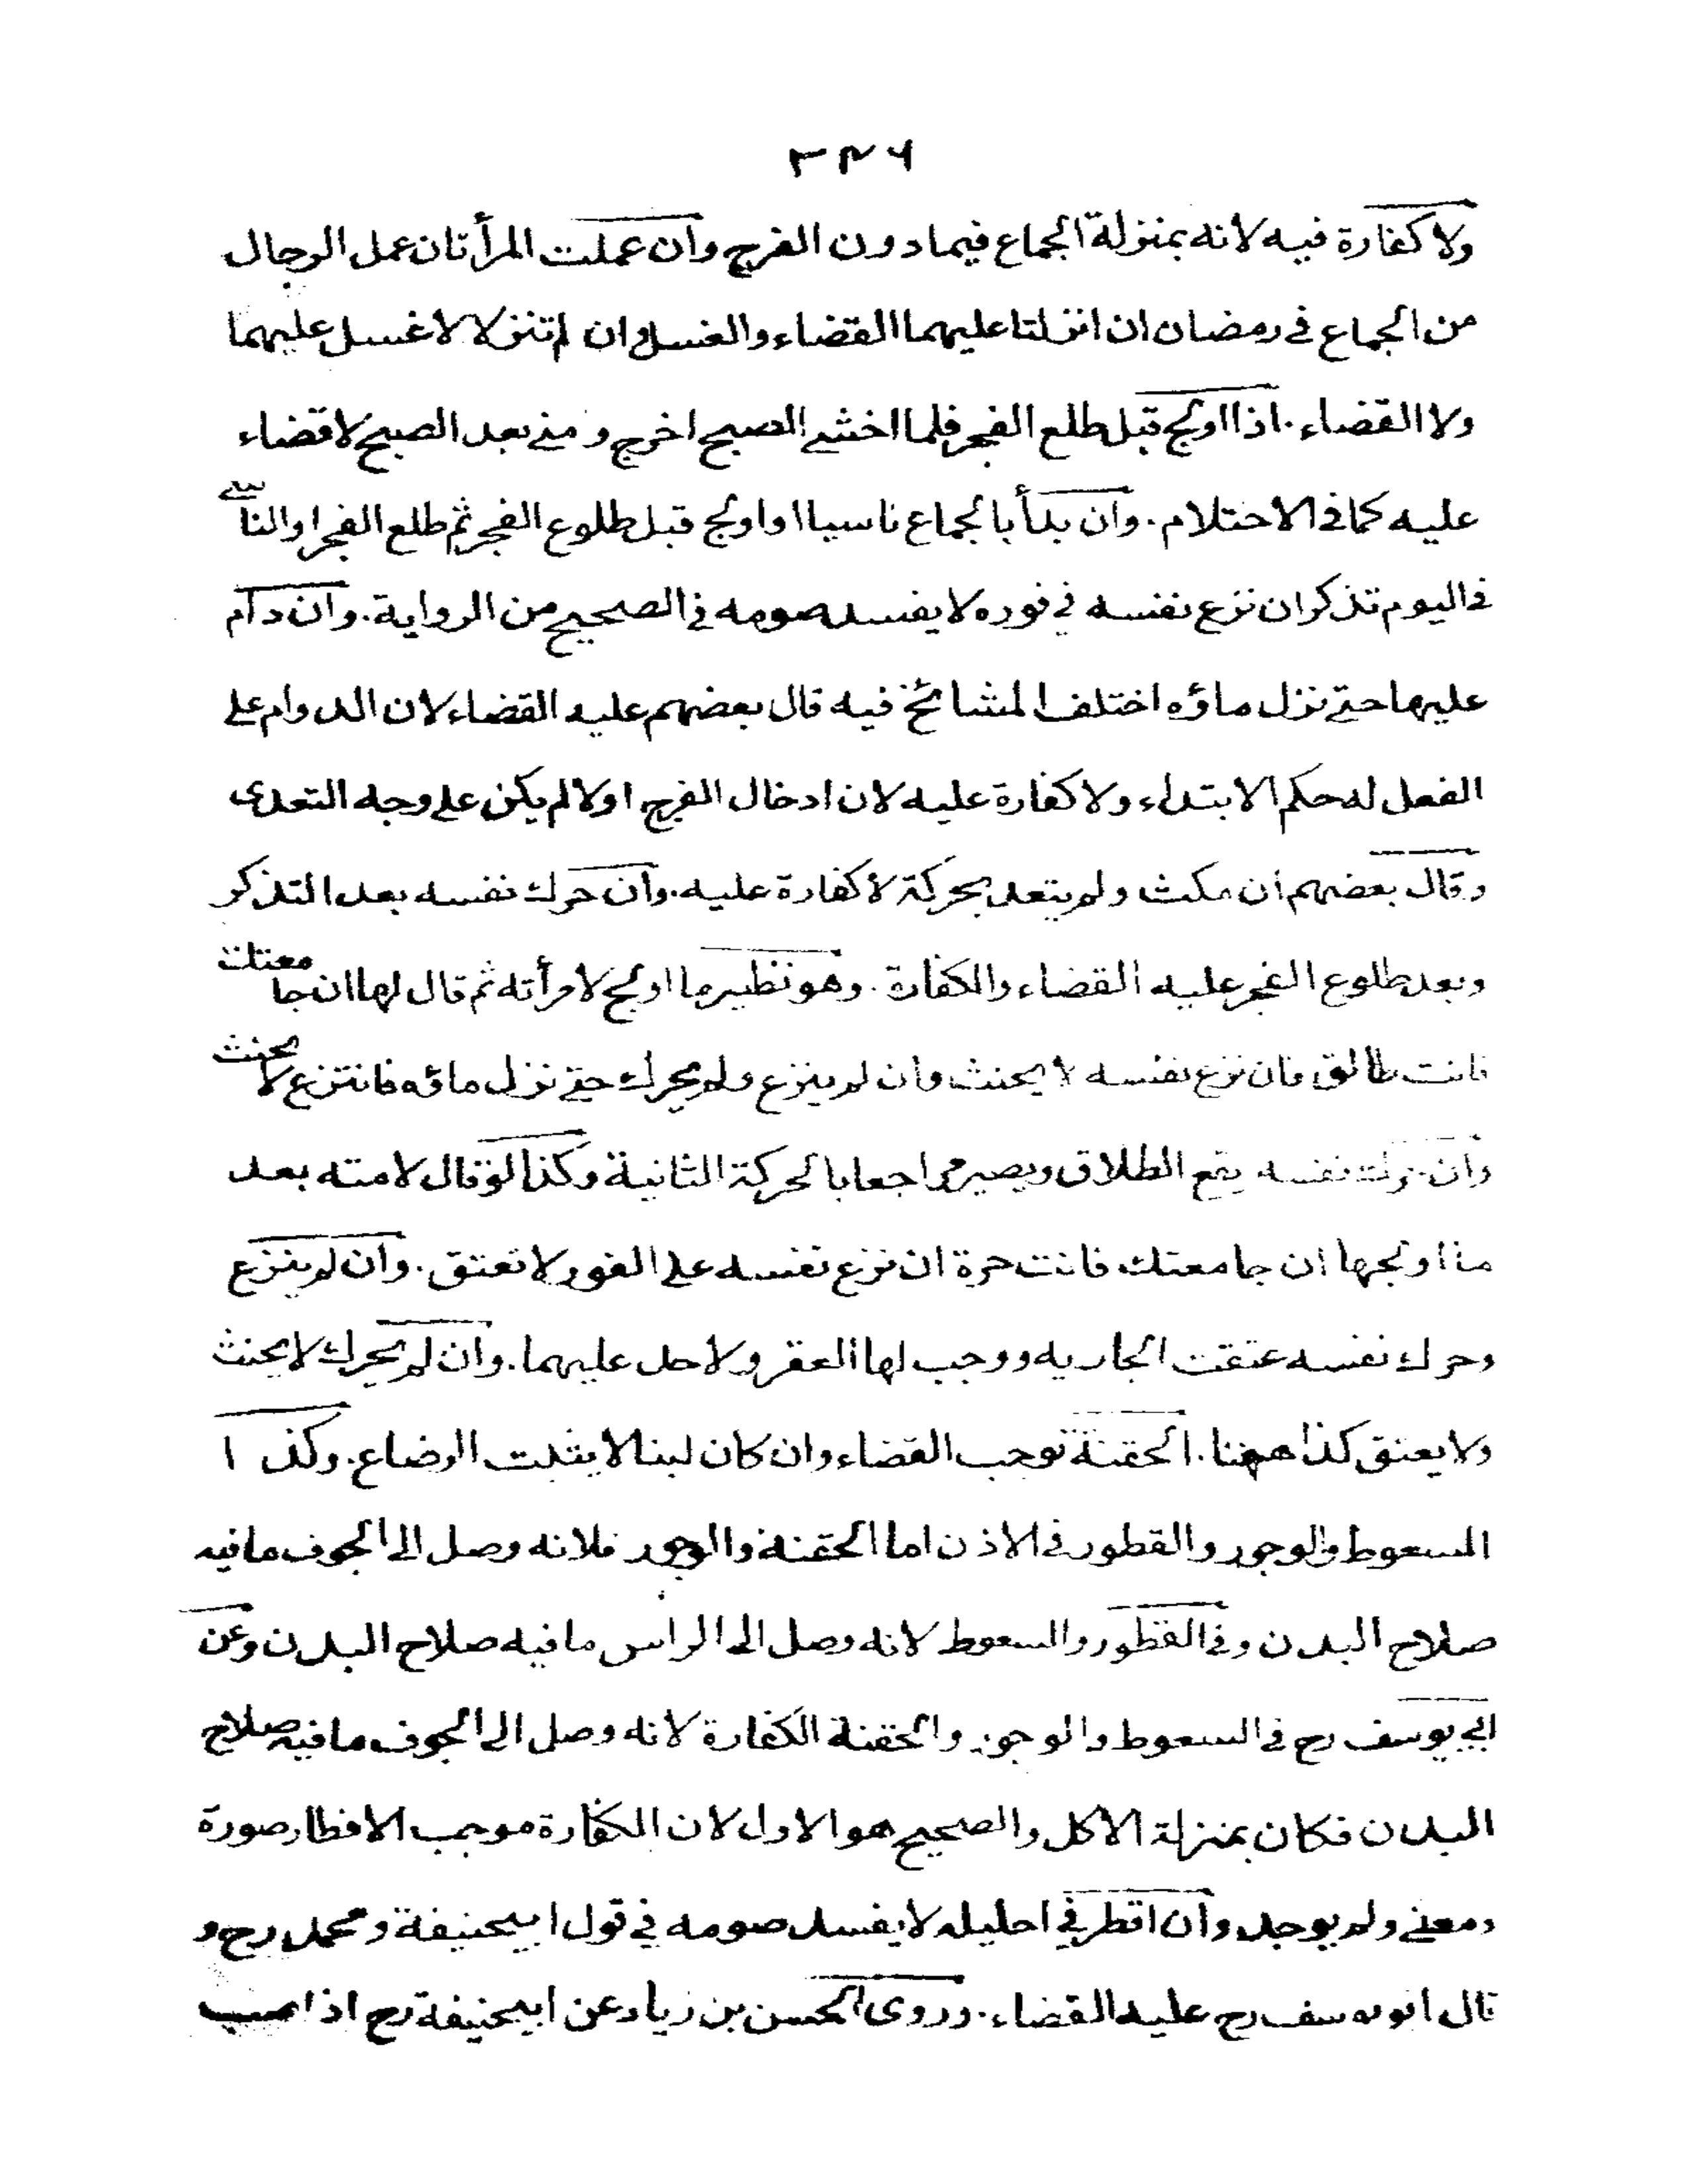 ٣٤٦
ولا كفارة فيه لانه بمنزلة الجماع فيما دون الفرج وان عملت المرأتان عمل الرجال
من الجماع فى رمضان ان انزلتا عليهما القضاء والغسل وان لم تنزلا لا غسل عليهما
ولا القضاء. اذا اولج قبل طلع الفجر فلما اخشى الصبح اخرج و منى بعد الصبح لا قضاء
عليه كما فى الاحتلام. وان بدأ بالجماع ناسيا او اولج قبل طلوع الفجر ثم طلع الفجر او الناسى
فى اليوم تذكر ان نزع نفسه فى فوره لا يفسد صومه فى الصحيح من الرواية. وان دام
عليها حتى نزل ماؤه اختلف المشائخ فيه قال بعضهم عليه القضاء لان الدوام على
الفعل له حكم الابتداء ولا كفارة عليه لان ادخال الفرج اولا لم يكن على وجه التعدى
وقال بعضهم ان مكث ولم يتعد بحركة لا كفارة عليه. وان حرك نفسه بعد التذكر
وبعد طلوع الفجر عليه القضاء والكفارة. وهو نظير ما اولج لامرأته ثم قال لها ان جامعتك
فانت طالق فان نزع نفسه لا يحنث وان لم ينزع ولم يحرك حتى نزل ماؤه فانتزع لا يحنث
وان حرك نفسه يقع الطلاق ويصير مراجعا بالحركة الثانية وكذا لو قال لامته بعد
ما اولجها ان جامعتك فانت حرة ان نزع نفسه على الفور لا تعتق. وان لم ينزع
وحرك نفسه عتقت الجاريه ووجب لها العقر ولا حد عليهما. وان لم يحرك لا يحنث
ولا يعتق كذا ههنا. الحقنة توجب القضاء وان كان لبنا لا يثبت الرضاع. وكذا
السعوط والوجور والقطور فى الاذن اما الحقنة والوجور فلانه وصل الى الجوف ما فيه
صلاح البدن وفى القطور والسعوط لانه وصل الى الراس ما فيه صلاح البدن وعن
ابى يوسف رح فى السعوط والوجور والحقنة الكفارة لانه وصل الى الجوف ما فيه صلاح
البدن فكان بمنزلة الاكل والصحيح هو الاول لان الكفارة موجب الافطار صورة
ومعنى ولم يوجد وان اقطر فى احليله لا يفسد صومه فى قول ابيحنيفة ومحمد رح و
قال ابو يوسف رح عليه القضاء. وروى الحسن بن زياد عن ابيحنيفة رح اذا صب